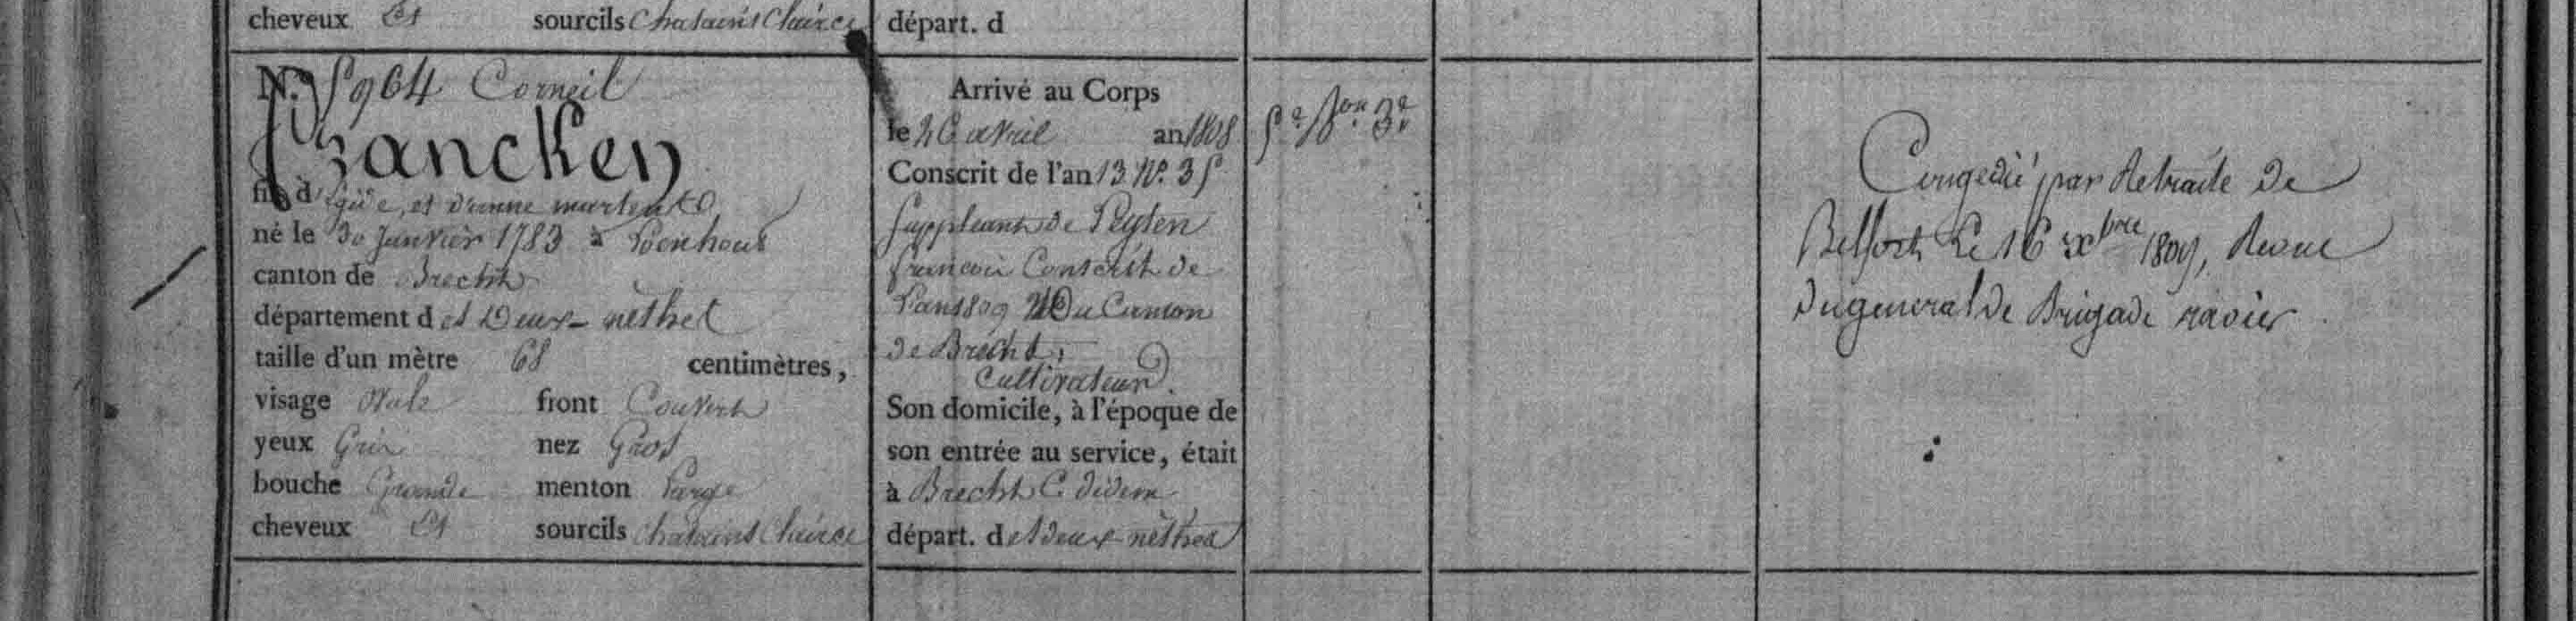 cheveux et sourcils Chatains Claires
départ. d
N.º 5964 Corneil
Francken
fils d'Egide, et d'anne martens
né le 30 Janvier 1783 à Loenhout
canton de Brecht
département des Deux-nèthes
taille d'un mètre 68 centimètres,
visage ovale front Couvert
yeux Gris nez Gros
bouche Grande menton Large
cheveux et sourcils Chatains Claires
Arrivé au Corps
le 26 avril an 1808
Conscrit de l'an 13 Nº. 35
suppléant de Peyten
francois Conscrit de
l'an 1809 du Canton
de Brecht,
Cultivateur.
Son domicile, à l'époque de
son entrée au service, était
à Brecht C. didem
départ. des deux-nèthes
5e Bon 3e
Congedié par Retraite de
Belfort Le 16 xbre 1809, Revue
du general de Brigade ravier